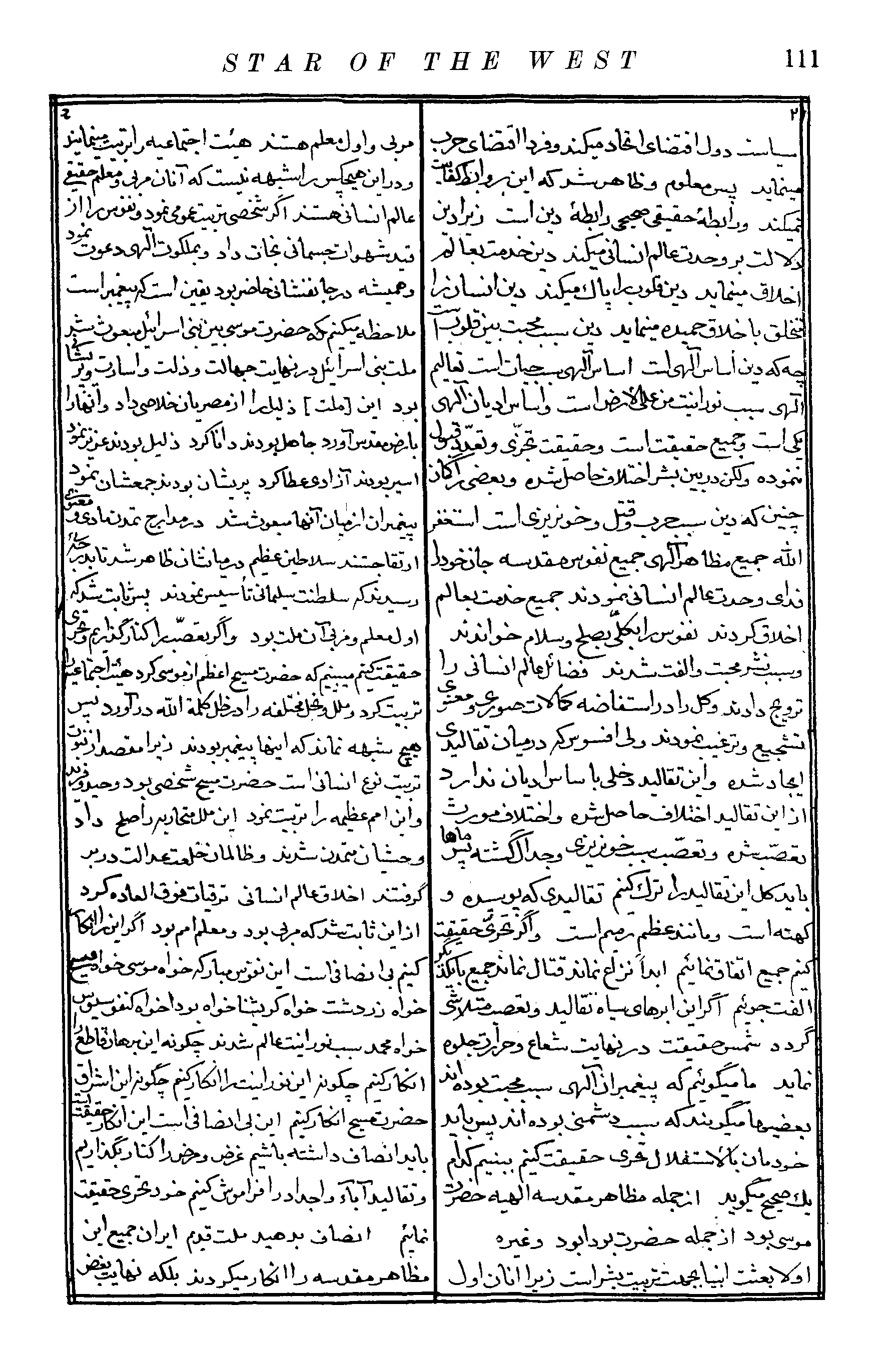 STAR OF THE WEST 111
٢
سیاست دول اقتضای اتحاد میکند و فردا اقتضای حرب
مینماید پس معلوم و ظاهر شد که این روابط کفایت
نمیکند و رابطهٔ حقیقی صحیحی رابطهٔ دین است زیرا دین
دلالت بر وحدت عالم انسانی میکند دین خدمت بعالم
اخلاق مینماید دین قلوب را پاک میکند دین انسان را
متخلق باخلاق حمیده مینماید دین سبب محبت بین قلوب است
چه که دین اساس الهی است اساس الهی سبب حیات است تعالیم
الهی سبب نورانیت من علی الارض است و اساس ادیان الهی
یکی است و جمیع حقیقت است و حقیقت تجزّی و تعدّد قبول
ننموده ولکن در بین بشر اختلاف حاصل شده و بعضی را گمان
چنین که دین سبب حرب و قتل و خونریزی است استغفر
الله جمیع مظاهر الهی جمیع نفوس مقدسه جان خود را
فدای وحدت عالم انسانی نمودند جمیع خدمت بعالم
اخلاق کردند نفوس را بکلّی بصلح و سلام خواندند
و سبب نشر محبت و الفت شدند فضائل عالم انسانی را
ترویج دادند و کل را در استفاضه کمالات صوری و معنوی
تشجیع و ترغیب نمودند ولی افسوس که در میان تقالیدی
ایجاد شده و این تقالید دخلی باساس ادیان ندارد
از این تقالید اختلاف حاصل شده و اختلاف مورث
تعصّب شده و تعصّب سبب خونریزی و جدال گشته پس ماها
باید کل این تقالید را ترک کنیم تقالیدی که پوسیده و
کهنه است و مانند عظم رمیم است و اگر تحرّی حقیقت
کنیم جمیع اتفاق نمائیم ابداً نزاع نماند قتال نماند جمیع با یکدیگر
الفت جوئیم اگر این ابرهای سیاه تقالید و تعصب متلاشی
گردد شمس حقیقت در نهایت شعاع و حرارت جلوه
نماید ما میگوئیم که پیغمبران الهی سبب محبت بوده اند
بعضیها میگویند که سبب دشمنی بوده اند پس باید
خودمان بالاستقلال تحری حقیقت کنیم ببینیم کدام
یک صحیح میگوید از جمله مظاهر مقدسه الهیه حضرت
موسی بود از جمله حضرت بودا بود و غیره
اولا بعثت انبیا بجهت تربیت بشر است زیرا آنان اول
مربی و اول معلم هستند هیئت اجتماعیه را تربیت مینمایند
و در این هیچکس را شبهه نیست که آنان مربی و معلم حقیقی
عالم انسانی هستند اگر شخصی تربیت عمومی نمود و نفوس را از
قید شهوات جسمانی نجات داد و بملکوت الهی دعوت نمود
و همیشه در جانفشانی حاضر بود یقین است که پیغمبر است
ملاحظه میکنیم که حضرت موسی بین بنی اسرائیل مبعوث شد
ملت بنی اسرائیل در نهایت جهالت و ذلت و اسارت و پریشانی
بود این [ملت] ذلیل را از مصریان خلاصی داد و آنها را
بارض مقدس آورد جاهل بودند دانا کرد ذلیل بودند عزیز نمود
اسیر بودند آزادی عطا کرد پریشان بودند جمعشان نمود
پیغمبران از میان آنها مبعوث شد در مدارج تمدن مادی و معنوی
ارتقا جستند سلاطین عظیم در میانشان ظاهر شد تا بدرجهٔ
رسیدند که سلطنت سلیمانی تأسیس نمودند پس ثابت شد که
اول معلم و مربی آن ملت بود و اگر تعصّب را کنار گذاریم و تحری
حقیقت کنیم میبینیم که حضرت مسیح اعظم از موسی کرد هیئت اجتماعیه را
تربیت کرد و ملل و نحل مختلفه را در ظل کلمة الله در آورد پس
هیچ شبهه نماند که اینها پیغمبر بودند زیرا مقصد از نبوت
تربیت نوع انسانی است حضرت مسیح شخصی بود وحید و فرید
و این امم عظیمه را تربیت نمود این ملل متحاربه را صلح داد
وحشیان متمدن شدند و ظالمان خلعت عدالت در بر
گرفتند اخلاق عالم انسانی ترقیات فوق العاده کرد
از این ثابت شد که مربی بود و معلم امم بود اگر این را انکار
کنیم بی انصافی است این نفوس مبارکه خواه موسی خواه مسیح
خواه زردشت خواه کریشنا خواه بودا خواه کنفوسیوس
خواه محمد سبب نورانیت عالم شدند چگونه این برهان قاطع را
انکار کنیم چگونه این نورانیت را انکار کنیم چگونه این اشراق
حضرت مسیح انکار کنیم این بی انصافی است این انکار حقیقت است
باید انصاف داشته باشیم غرض و مرض را کنار بگذاریم
و تقالید آباء و اجداد را فراموش کنیم خود تحری حقیقت
نمائیم انصاف بدهید ملت قدیم ایران جمیع این
مظاهر مقدسه را انکار میکردند بلکه نهایت بغض